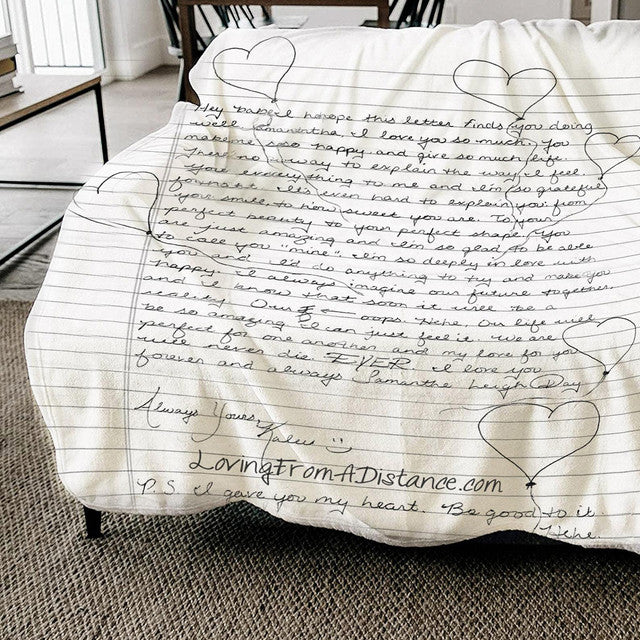 Hey babe I hope this letter finds you doing
well Samantha. I love you so much. You
make me so happy and give so much life.
There no way to explain the way I feel.
You everything to me and I'm so grateful
for that. It's even hard to explain you from
your smile to how sweet you are. To your
perfect beauty to your perfect shape. You
are just amazing and I'm so glad to be able
to call you "mine". I'm so deeply in love with
you and I'd do anything to try and make you
happy. I always imagine our future together.
and I know that soon it will be a
reality. Our ← oops. Hehe. Our life will
be so amazing I can just feel it. We are
perfect for one another and my love for you
will never die EVER. I love you
forever and always Samantha Leigh Day
Always Yours,
Kaleb :)
LovingFromADistance.com
P.S. I gave you my heart. Be good to it
Hehe.